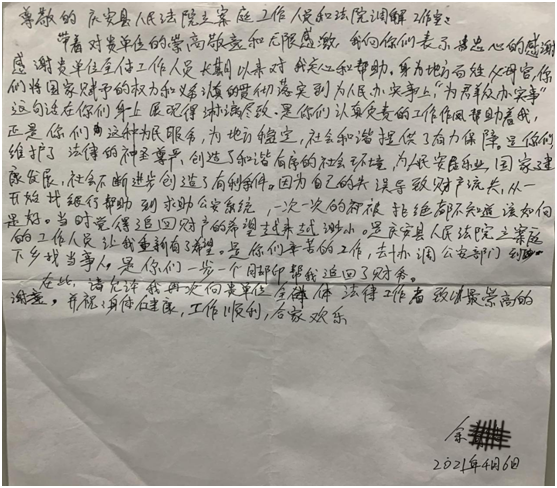 尊敬的庆安县人民法院立案庭工作人员和法院调解工作室:
带着对贵单位的崇高敬意和无限感激,我向你们表示忠心的感谢
感谢贵单位全体工作人员长期以来对我关心和帮助。身为地方的
们将国家赋予的权力和义务真的贯彻落实到为人民办实事上"为群众办实事"
这句话在你们身上展现得淋漓尽致。是你们认真负责的工作作风帮助着我,
正是你们用这种为民服务,为地方稳定,社会和谐提供了有力保障。是你们
维护了法律的神圣尊严,创造了和谐有序的社会环境,为人民安居乐业,国家建
康发展,社会不断进步创造了有利条件。因为自己的失误导致财产流失,从一
开始找银行帮助到求助公安系统,一次一次的都被拒绝都不知道该如何
是好。当时觉得追回财产的希望越来越渺小。是庆安县人民法院立案庭
的工作人员让我重新有了希望。是你们辛苦的工作,去协调公安部门到
下乡找当事人。是你们一步一个脚印帮我追回了财务。
在此,请允许我再次向贵单位全体法律工作者致以最崇高的
谢意。并祝:身体健康,工作顺利,合家欢乐
余
2021年4月6日